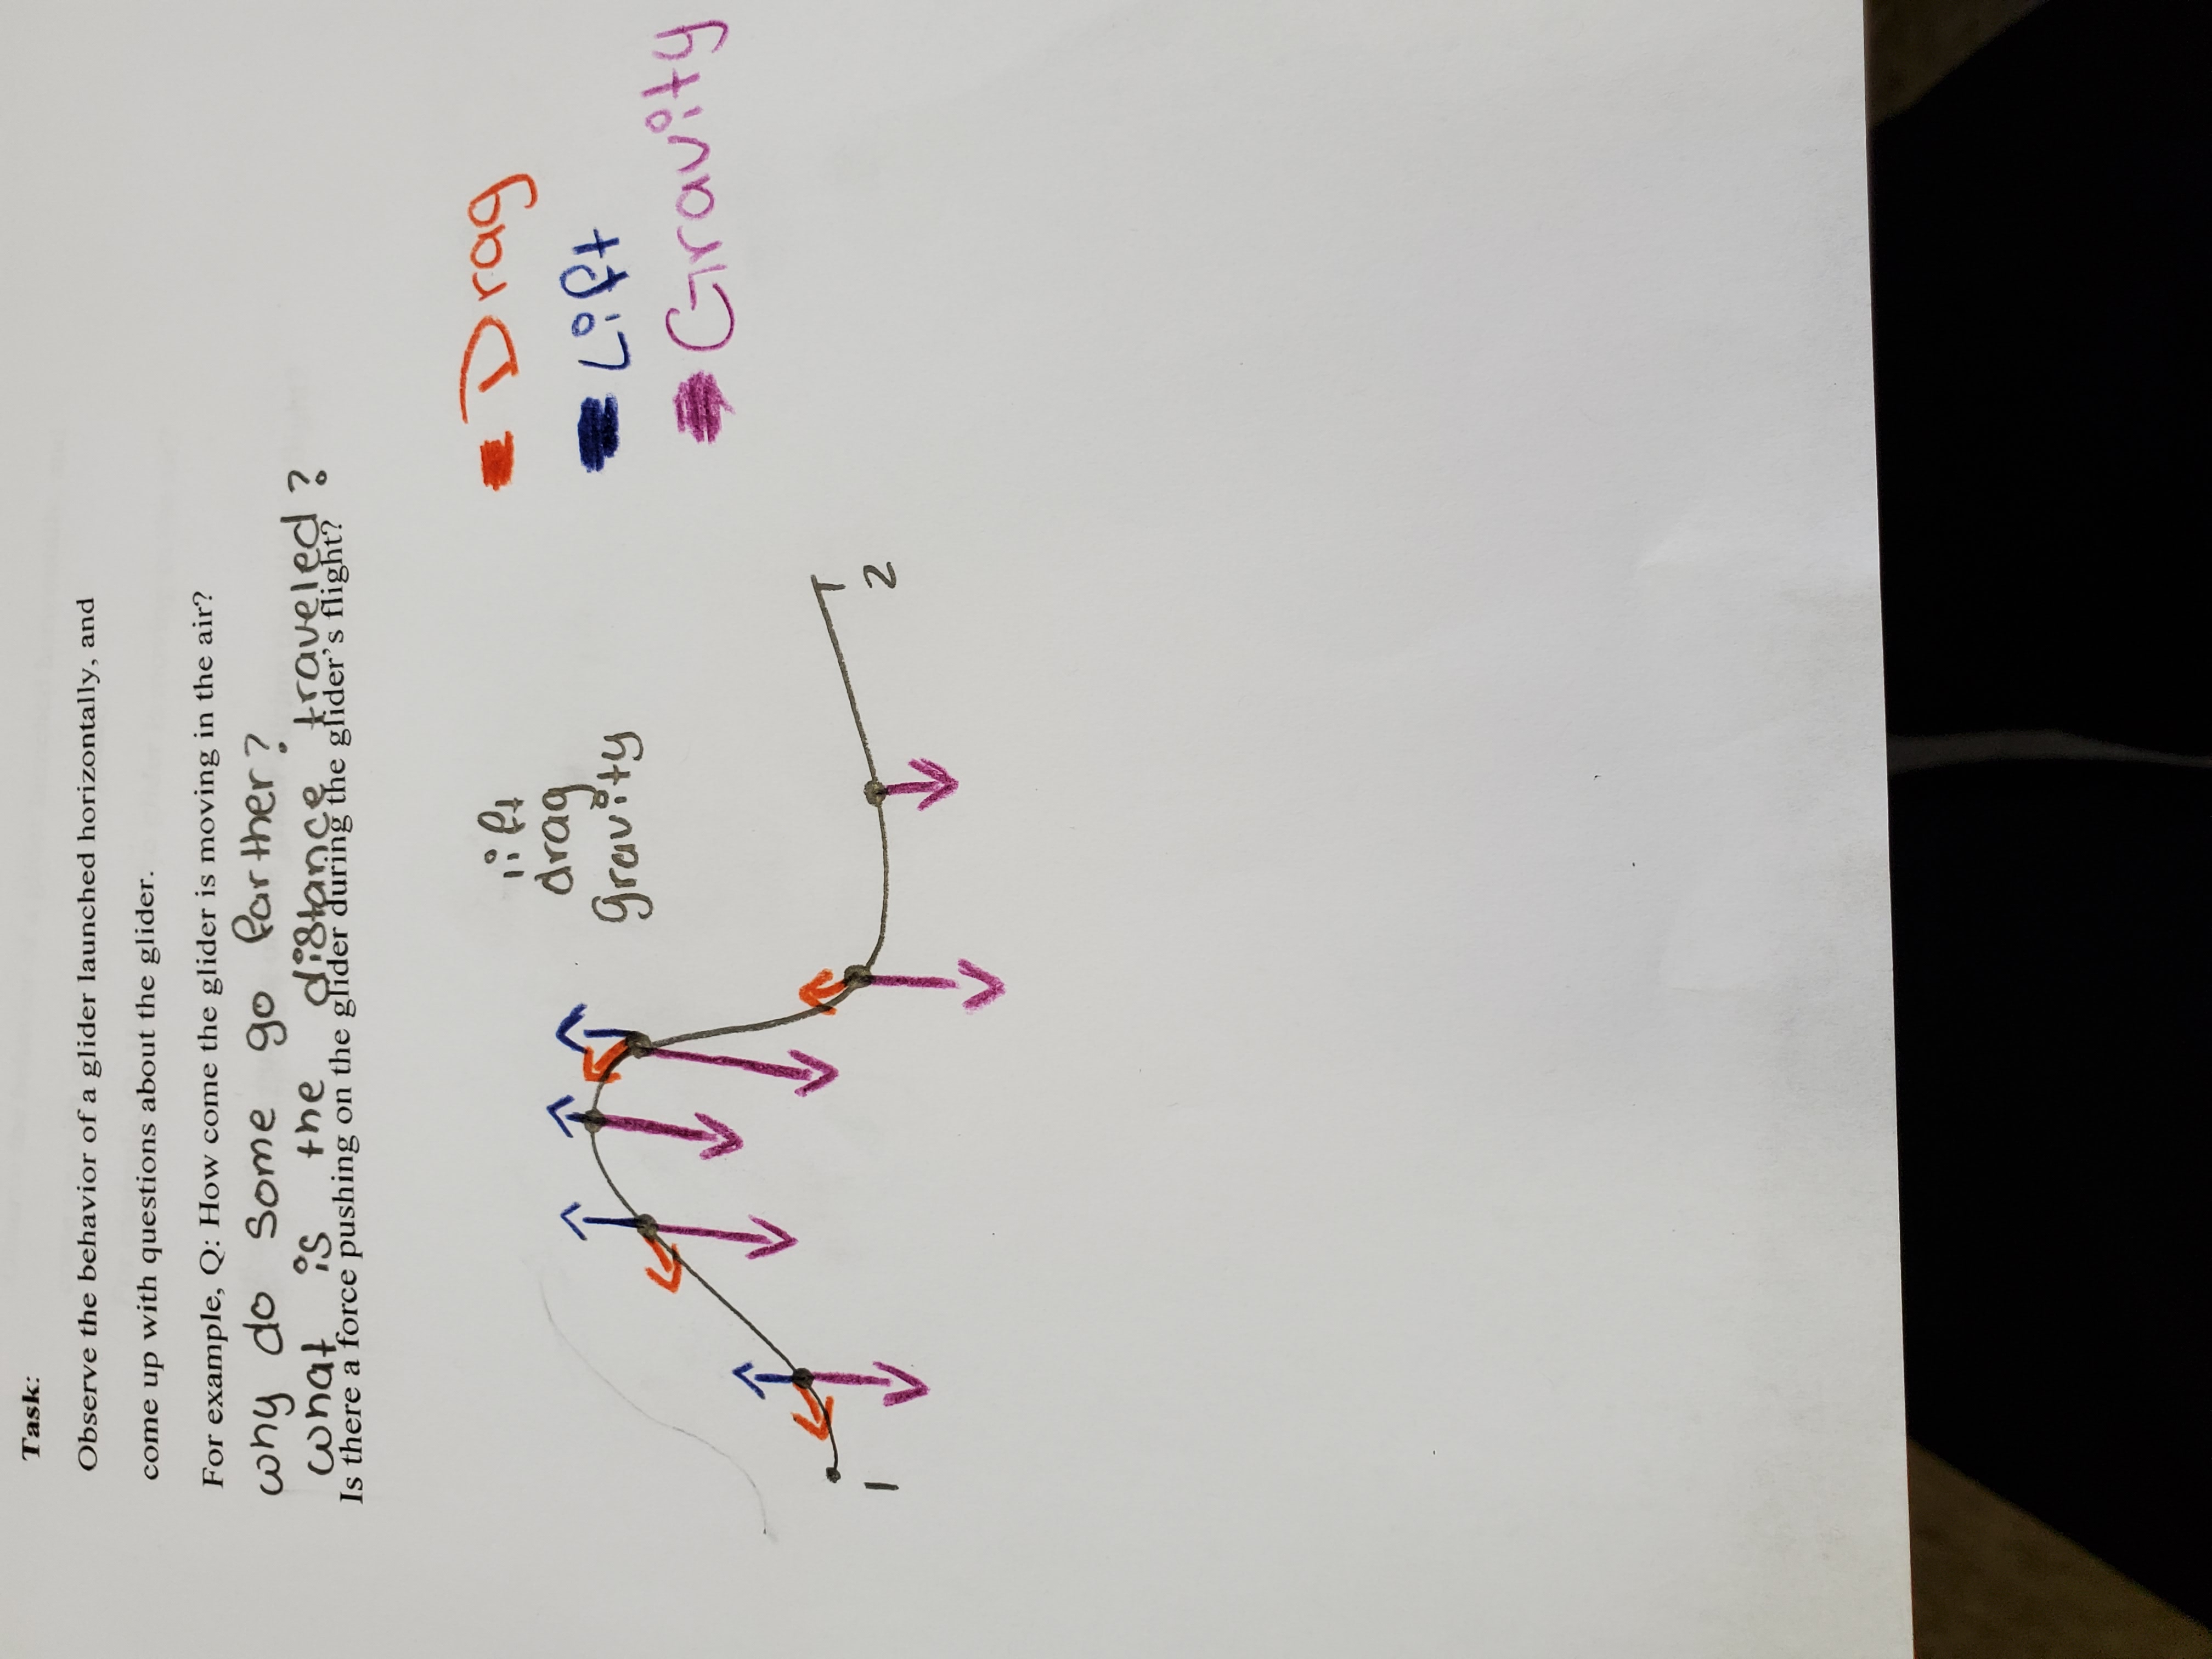 Task:
Observe the behavior of a glider launched horizontally, and
come up with questions about the glider.
For example, Q: How come the glider is moving in the air?
why do some go farther?
what is the distance traveled?
Is there a force pushing on the glider during the glider's flight?
lift
drag
gravity
Drag
Lift
Gravity
1
2